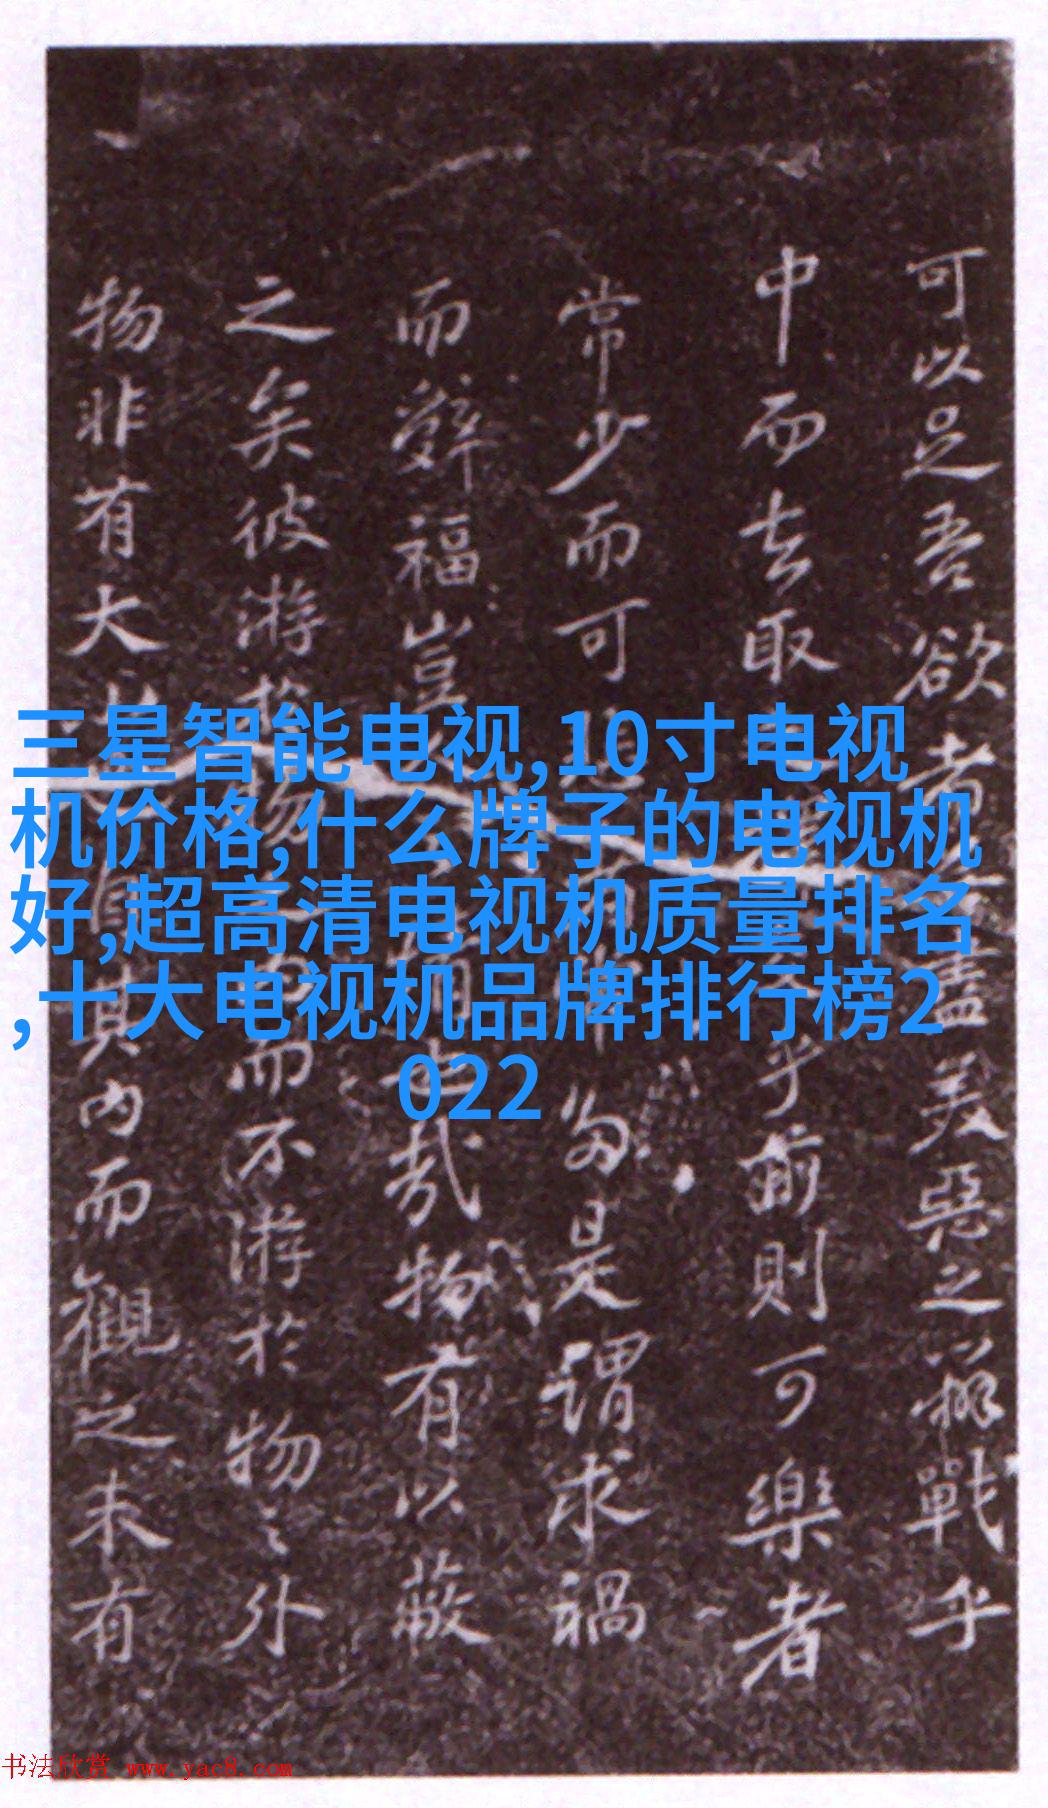 可以足吾欲者盡美惡之辨戰乎
中而去取乎前則可樂者
常少而可多是謂求禍
而辭福豈也哉物有以蔽
之矣彼游於物而不游於物之外
物非有大自其內而觀之未有
三星智能电视,10寸电视
机价格,什么牌子的电视机
好,超高清电视机质量排名
,十大电视机品牌排行榜2
022
书法欣赏 www.yac8.com